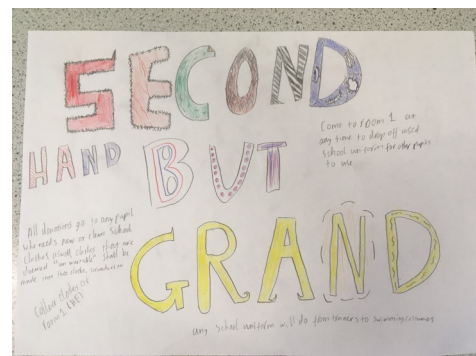 SECOND
HAND BUT
GRAND
Come to room 1 at
any time to drop off used
school uniform for other pupils
to use
All donations go to any pupil
who needs new or clean school
clothes clothes that are
deemed "un wearable" shall be
made into
Collect clothes at
room 1
any school uniform will do from blazers to swimming costumes